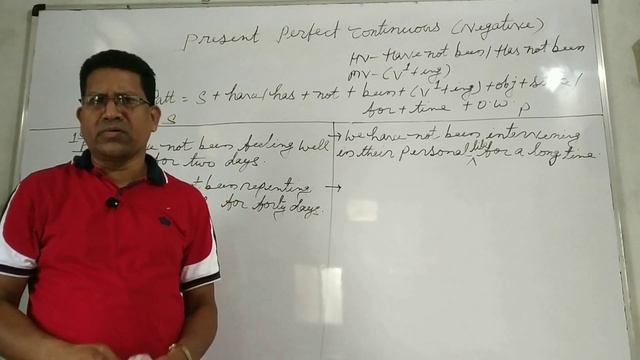 Present Perfect Continuous (Negative)
HV - Have not been / Has not been
MV - (V¹ + ing)
Patt = S + have/has + not + been + (V¹ + ing) + obj + since /
for + time + o.w. p
not been feeling well
for two days.
been repenting
for forty days.
→ We have not been intervening
in their personal life for a long time.
→